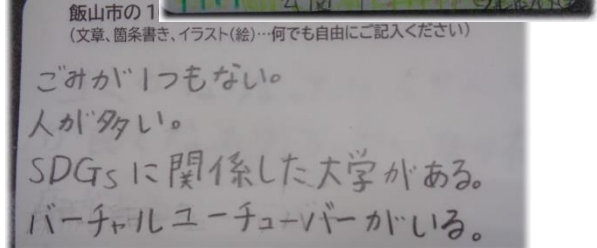 飯山市の1
(文章、箇条書き、イラスト(絵)…何でも自由にご記入ください)
ごみが1つもない。
人が多い。
SDGsに関係した大学がある。
バーチャルユーチューバーがいる。